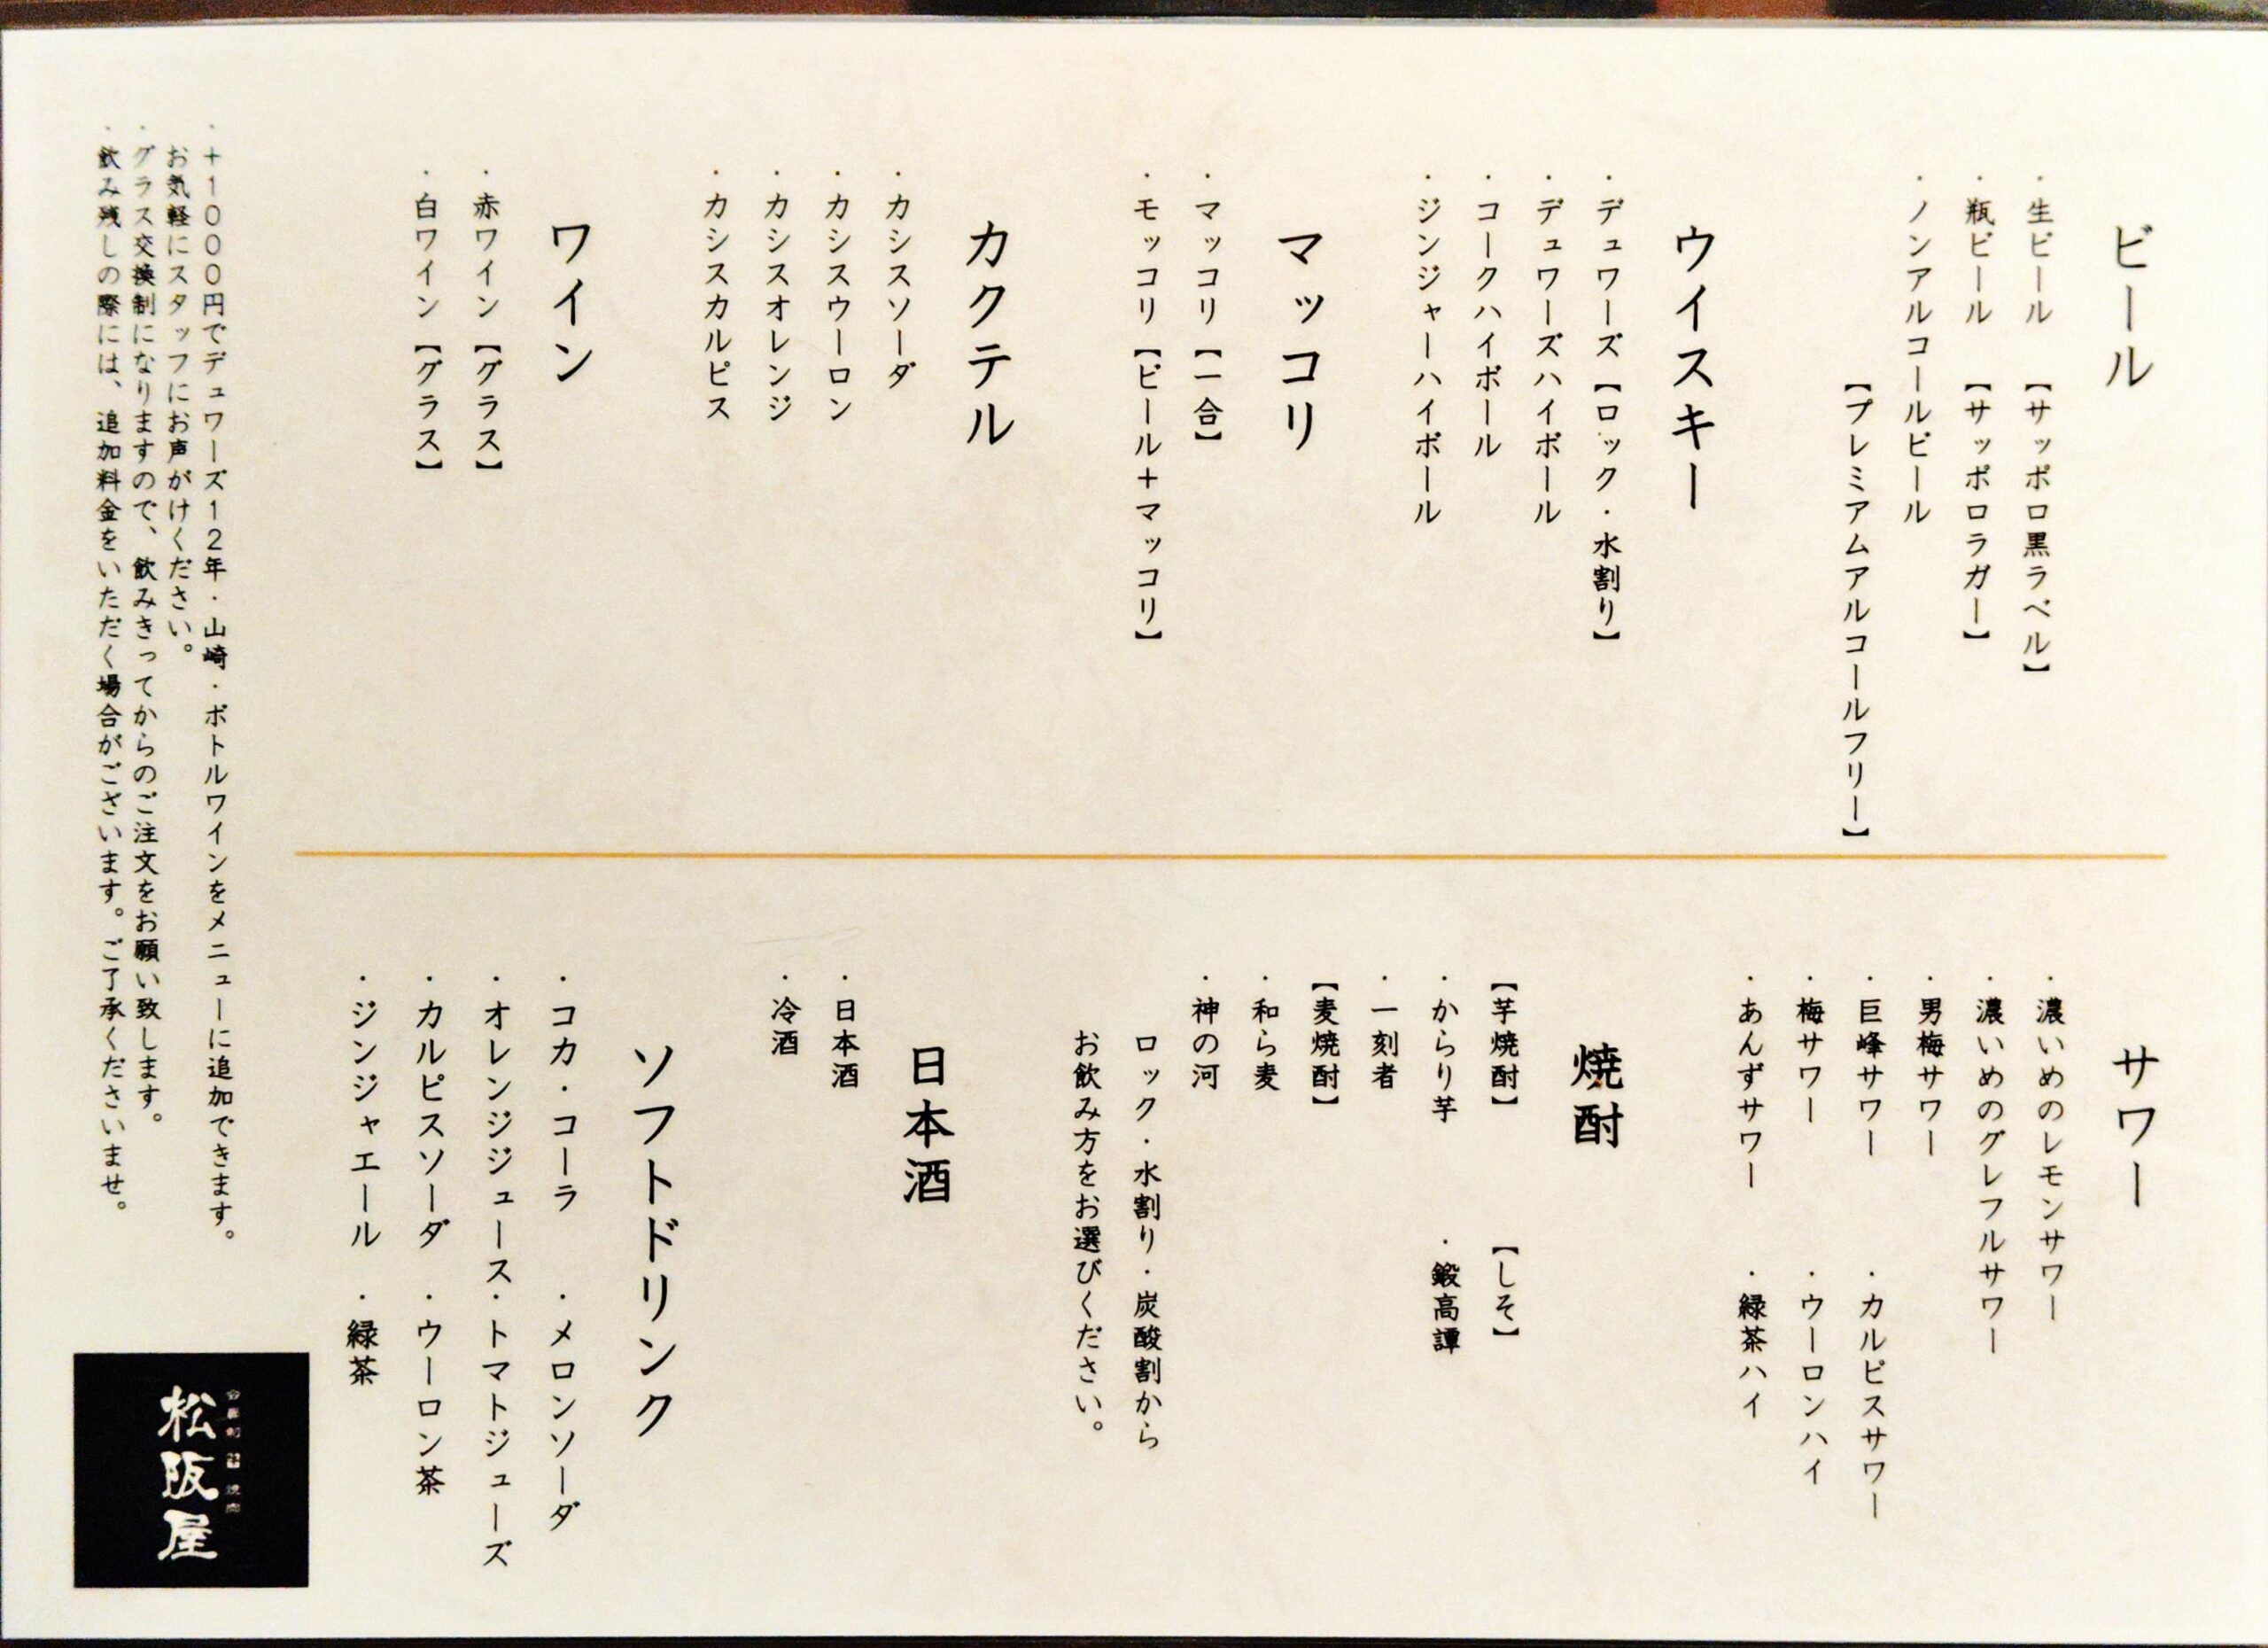 ビール
・生ビール 【サッポロ黒ラベル】
・瓶ビール 【サッポロラガー】
・ノンアルコールビール
【プレミアムアルコールフリー】
ウイスキー
・デュワーズ【ロック・水割り】
・デュワーズハイボール
・コークハイボール
・ジンジャーハイボール
マッコリ
・マッコリ【一合】
・モッコリ【ビール+マッコリ】
カクテル
・カシスソーダ
・カシスウーロン
・カシスオレンジ
・カシスカルピス
ワイン
・赤ワイン【グラス】
・白ワイン【グラス】
サワー
・濃いめのレモンサワー
・濃いめのグレフルサワー
・男梅サワー
・巨峰サワー ・カルピスサワー
・梅サワー ・ウーロンハイ
・あんずサワー ・緑茶ハイ
焼酎
【芋焼酎】 【しそ】
・からり芋 ・鍛高譚
・一刻者
【麦焼酎】
・和ら麦
・神の河
ロック・水割り・炭酸割から
お飲み方をお選びください。
日本酒
・日本酒
・冷酒
ソフトドリンク
・コカ・コーラ ・メロンソーダ
・オレンジジュース・トマトジューズ
・カルピスソーダ ・ウーロン茶
・ジンジャエール ・緑茶
・+1000円でデュワーズ12年・山崎・ボトルワインをメニューに追加できます。
お気軽にスタッフにお声がけください。
・グラス交換制になりますので、飲みきってからのご注文をお願い致します。
・飲み残しの際には、追加料金をいただく場合がございます。ご了承くださいませ。
松阪屋